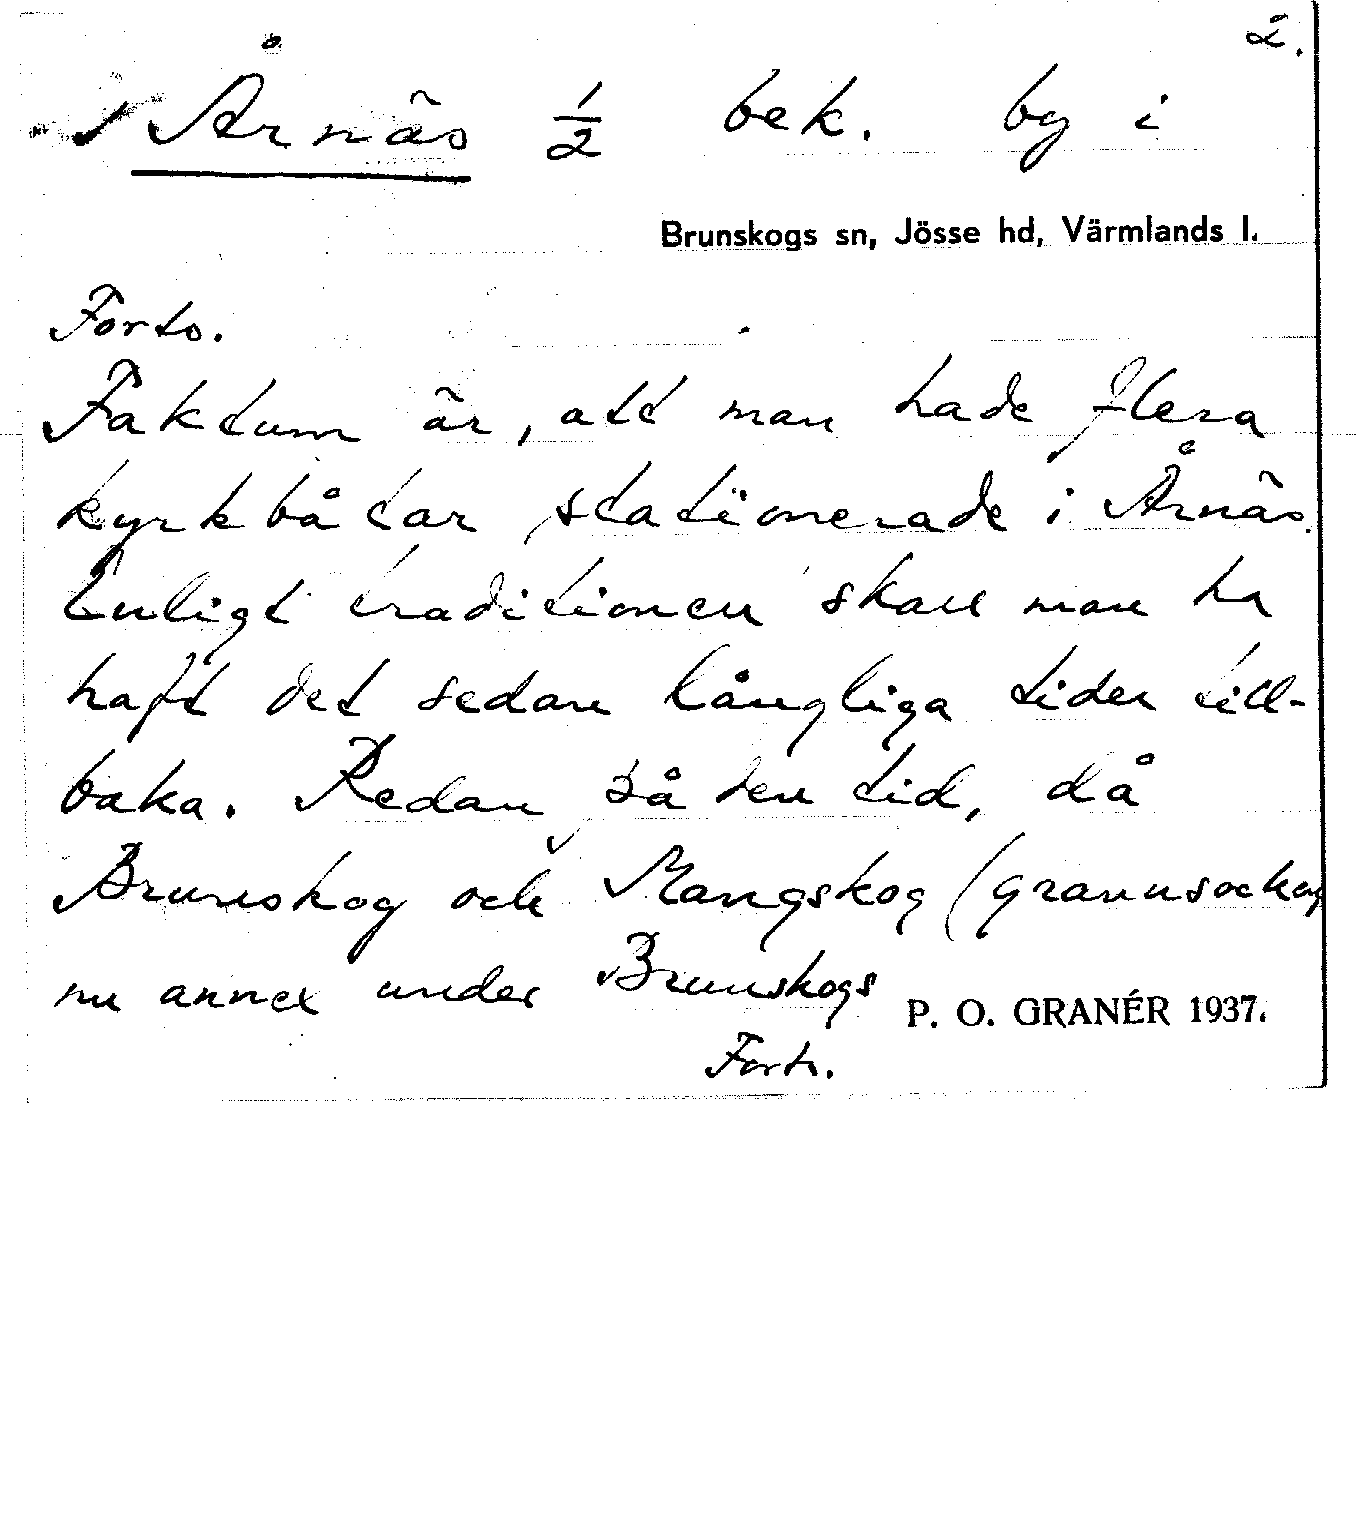 2.
Årnäs 1/2 bek. by i
Brunskogs sn, Jösse hd, Värmlands l.
Forts.
Faktum är, att man hade flera
kyrkbåtar stationerade i Årnäs.
Enligt traditionen skall man ha
haft det sedan långliga tider till-
baka. Redan på den tid, då
Brunskog och Mangskog (grannsocken,
nu annex under Brunskogs
P. O. GRANÉR 1937.
Forts.